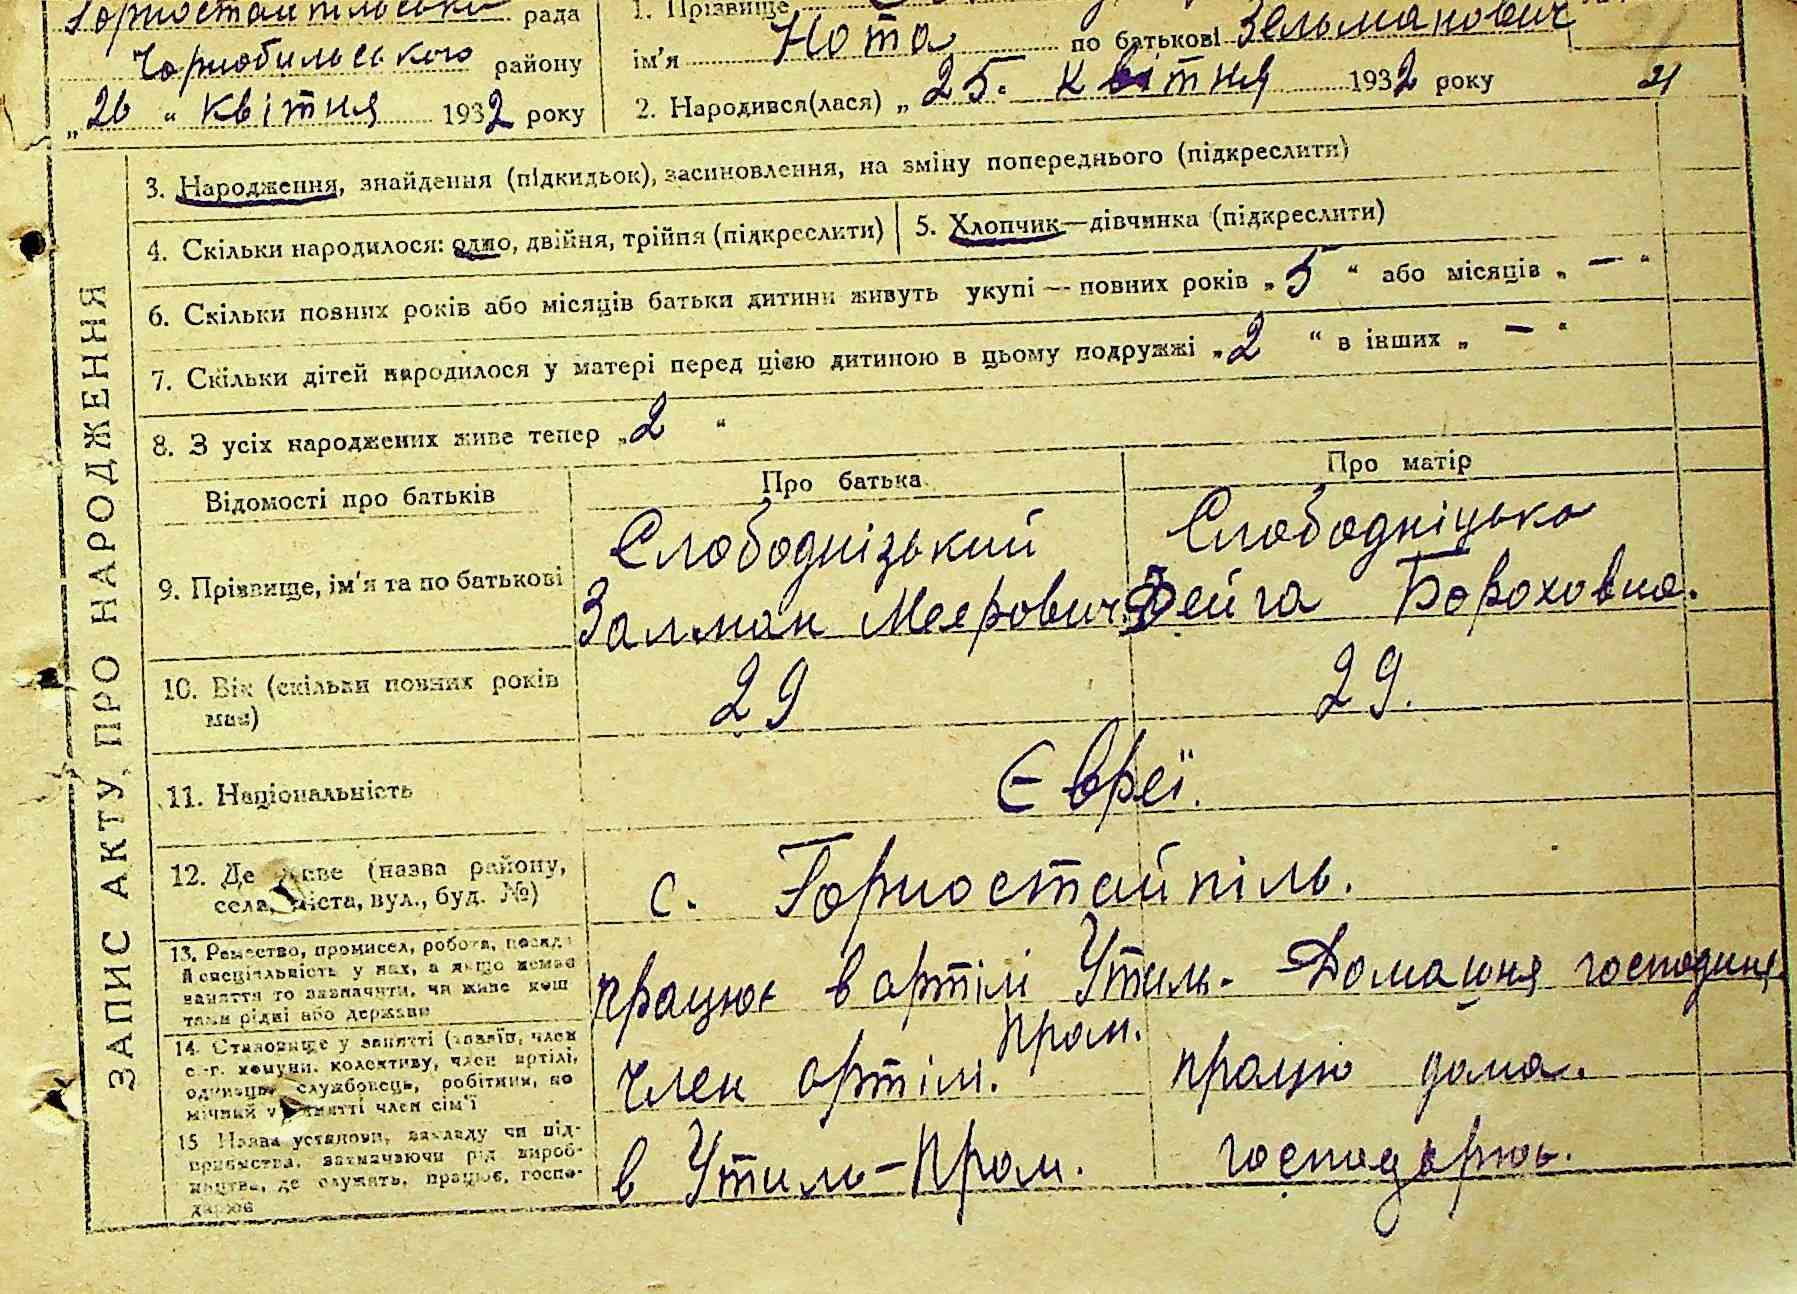 Горностайпільська рада
Чорнобильського району
„26“ квітня 1932 року
1. Прізвище
ім'я Нота по батькові Зельманович
2. Народився(лася) „25. квітня 1932 року
21
ЗАПИС АКТУ ПРО НАРОДЖЕННЯ
3. Народження, знайдення (підкидьок), засиновлення, на зміну попереднього (підкреслити)
4. Скільки народилося: одно, двійня, трійня (підкреслити)
5. Хлопчик—дівчинка (підкреслити)
6. Скільки повних років або місяців батьки дитини живуть укупі — повних років „5“ або місяців „—“
7. Скільки дітей народилося у матері перед цією дитиною в цьому подружжі „2“ в інших „—“
8. З усіх народжених живе тепер „2“
Відомості про батьків
Про батька
Про матір
9. Прізвище, ім'я та по батькові
Слободнізький
Залман Меерович
Слободніцька
Фейга Бороховна.
10. Вік (скільки повних років
має)
29
29.
11. Національність
Євреї.
12. Де живе (назва району,
села, міста, вул., буд. №)
с. Горностайпіль.
13. Ремество, промисел, робота, посада
й спеціяльність у них, а якщо немає
заняття то зазначити, чи живе кош
тами рідні або держави
працює в артілі Утиль-
пром.
Домашня господиня
14. Становище у занятті (хазяїн, член
с.-г. комуни, колективу, член артілі,
одинець, службовець, робітник, по
мічний у занятті член сім'ї
член артілі.
працю дома.
15 Назва установи, закладу чи під-
приємства, зазначаючи рід вироб-
ництва, де служить, працює, госпо-
дарює
в Утиль-Пром.
господарює.